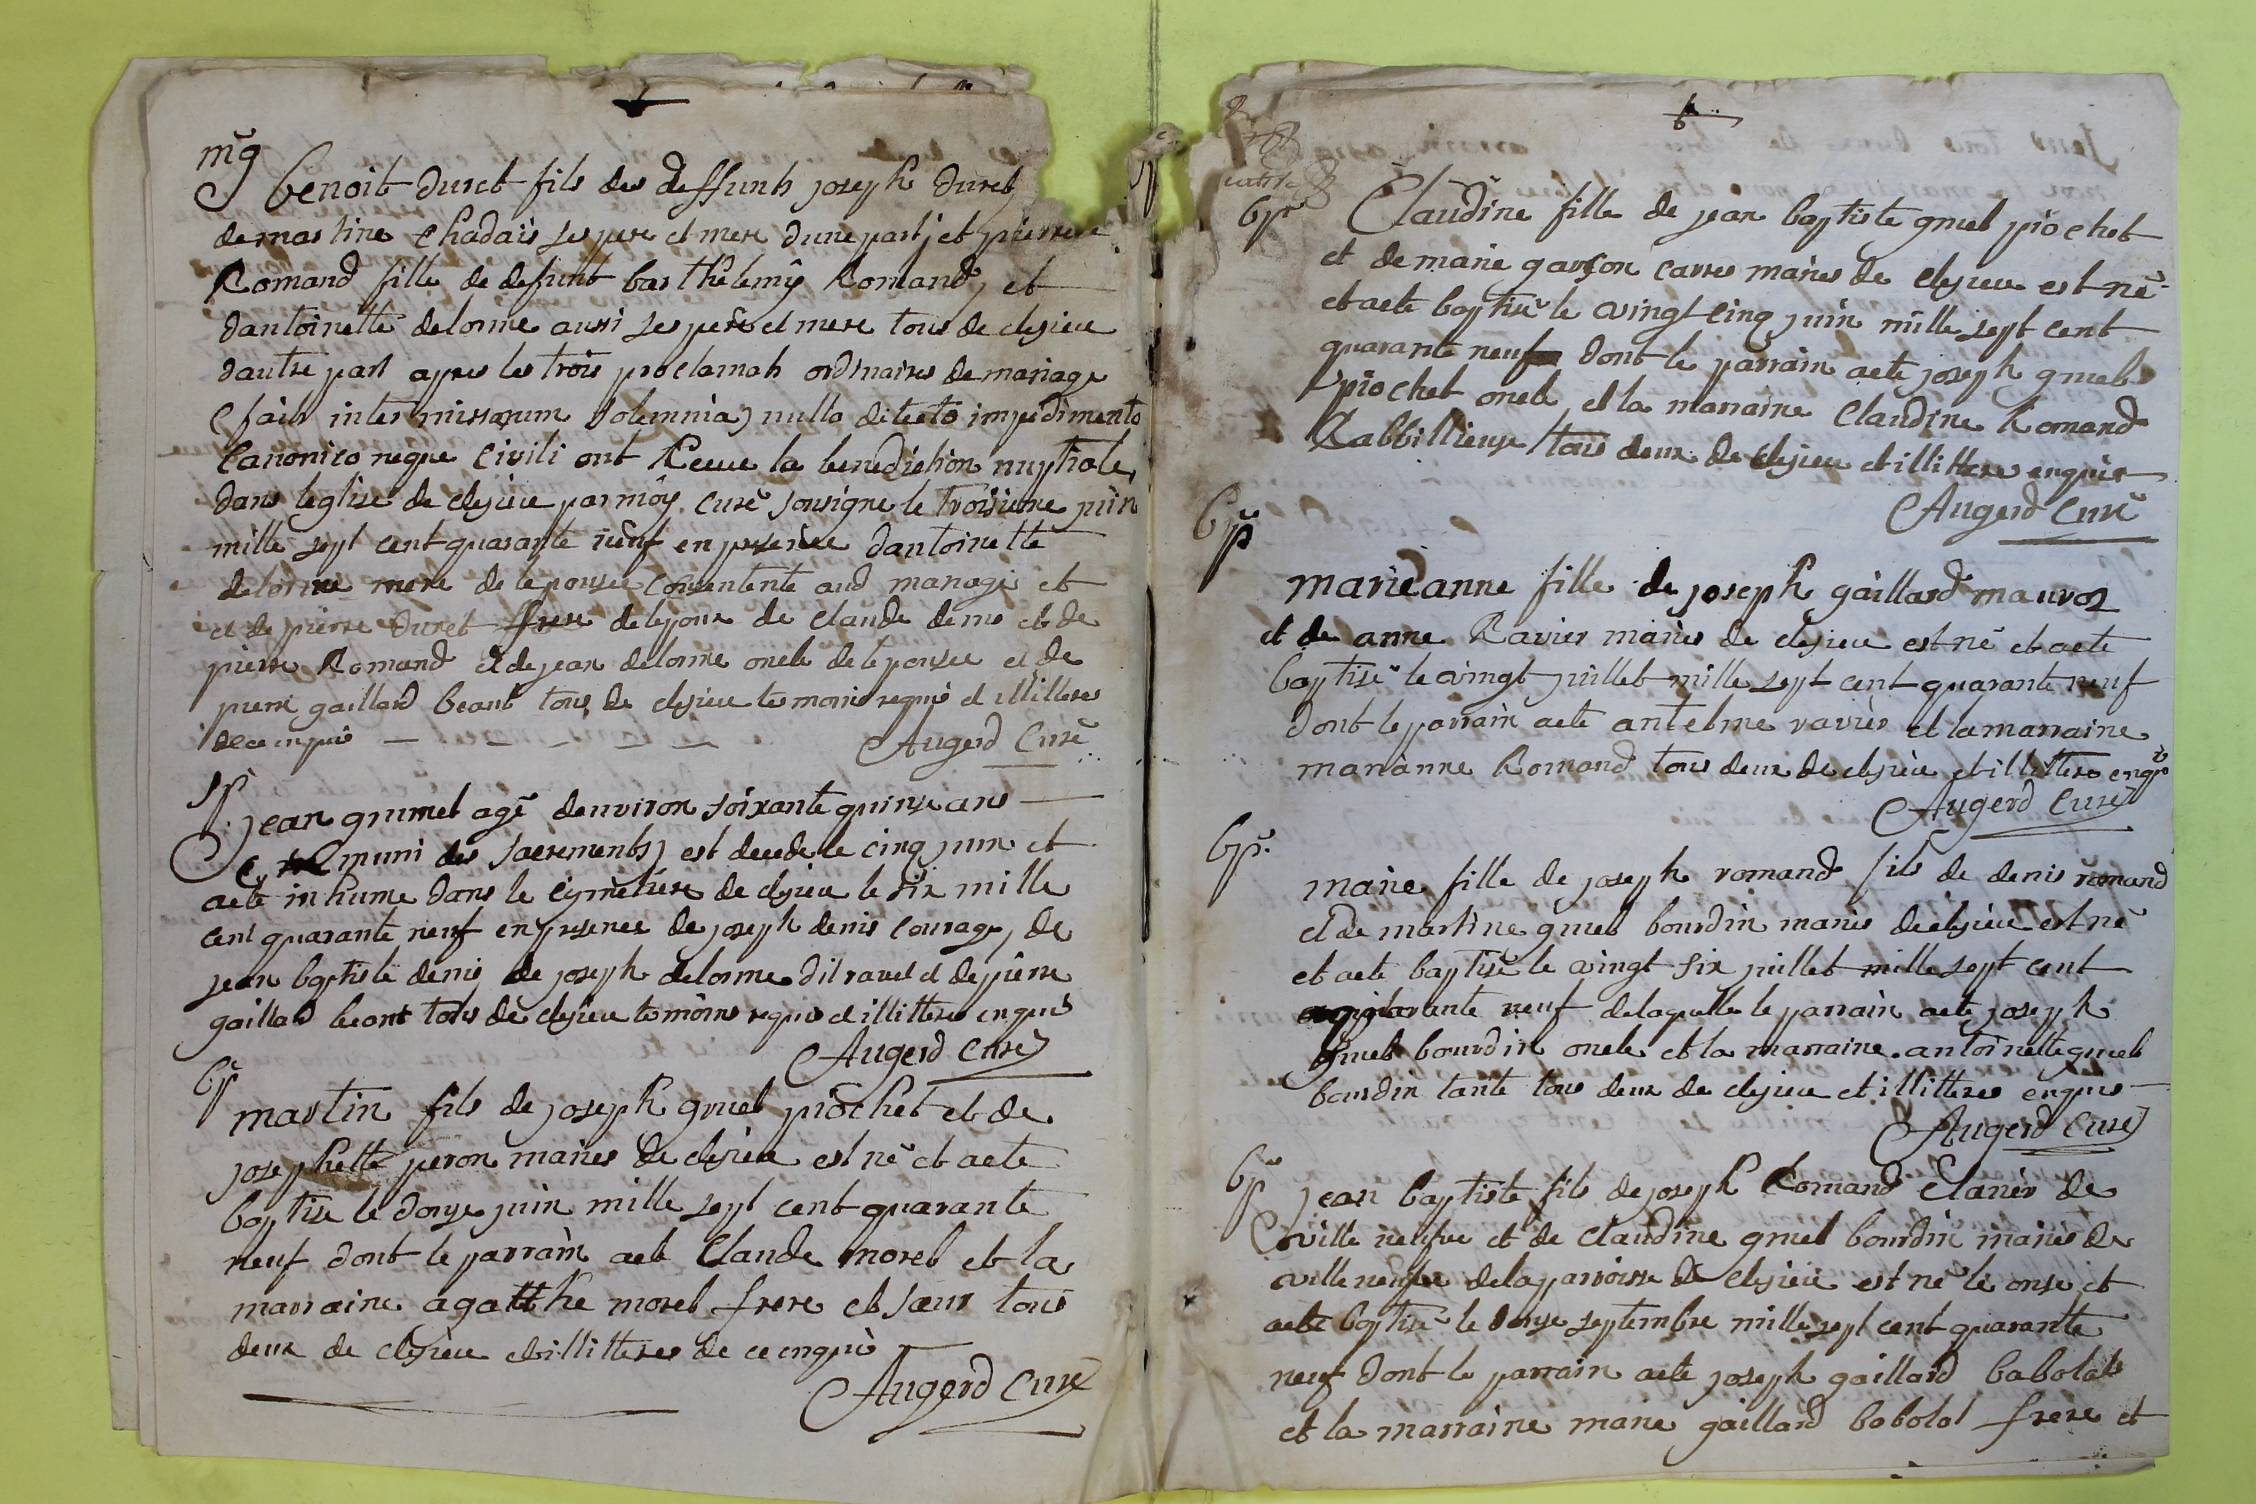 mg
benoit duret fils des deffunts joseph duret
de martine chadais ses pere et mere dune part, et pierrere
Romand fille de defunt barthelemy Romand, et
dantoinette delorme aussi ses pere et mere tous de clesieu
dautre part apres les trois proclamats ordinaires de mariage
(faits inter missarum solemnia) nullo ditecto impedimento
Canonico neque Civili ont Receue la benediction nuptiale,
dans leglise de clesieu par moy Curé sousigne le troisieme juin
mille sept cent quarante neuf en presence dantoinette
delorme mere de lepousee consentente aud mariage et
et de pierre duret frere de lepoux de claude denis et de
pierre Romand et de jean delorme oncle de lepousee et de
pierre gaillard beant tous de clesieu temoins requis et illitteres
de ce enquis Augerd Curé
sp
jean grumel agé denviron soixante quinse ans
(muni des sacrements) est decede le cinq juin et
aeté inhume dans le cymetiere de clesieu le six mille
cent quarante neuf en presence de joseph denis courage, de
jean baptiste denis de joseph delorme dit ravet et de pierre
gaillard beant tous de clesieu temoins requis et illitteres enquis
Augerd Curé
bp
martin fils de joseph gruel piochet et de
josephette peron mariés de clesieu est né et aeté
baptise le douse juin mille sept cent quarante
neuf dont le parrain aeté Claude morel et la
marraine agatthe morel frere et sœur tous
deux de clesieu et illitteres de ce enquis
Augerd Curé
6
bp
Claudine fille de jean baptiste gruel piochet
et de marie garson carres mariés de clesieu est né
et aeté baptisé le vingt cinq juin mille sept cent
quarante neuf dont le parrain aeté joseph gruel
piochet oncle et la marraine Claudine Romand
Rabbillieuse tous deux de clesieu et illittere enquis
Augerd Curé
bp
marieanne fille de joseph gaillard mauvos
et de anne Ravier mariés de clesieu est né et aeté
baptisé le vingt juillet mille sept cent quarante neuf
dont le parrain aeté antelme ravier et la marraine
marianne Romand tous deux de clesieu et illittere enqs
Augerd Curé
bp.
marie fille de joseph romand fils de denis romand
et de martine gruel bourdin mariés de clesieu est né
et aeté baptisé le vingt six juillet mille sept cent
quarante neuf delaquelle le parrain aeté joseph
gruel bourdin oncle et la marraine antoinette gruel
bourdin tante tous deux de clesieu et illitteres enquis
Augerd Curé
bp
jean baptiste fils de joseph Romand Clanis de
ville neufve et de claudine gruel bourdin mariés de
ville neufve dela parroisse de clesieu est né le onse et
aeté baptisé le douse septembre mille sept cent quarante
neuf dont le parrain aeté joseph gaillard babolat
et la marraine marie gaillard babolat frere et